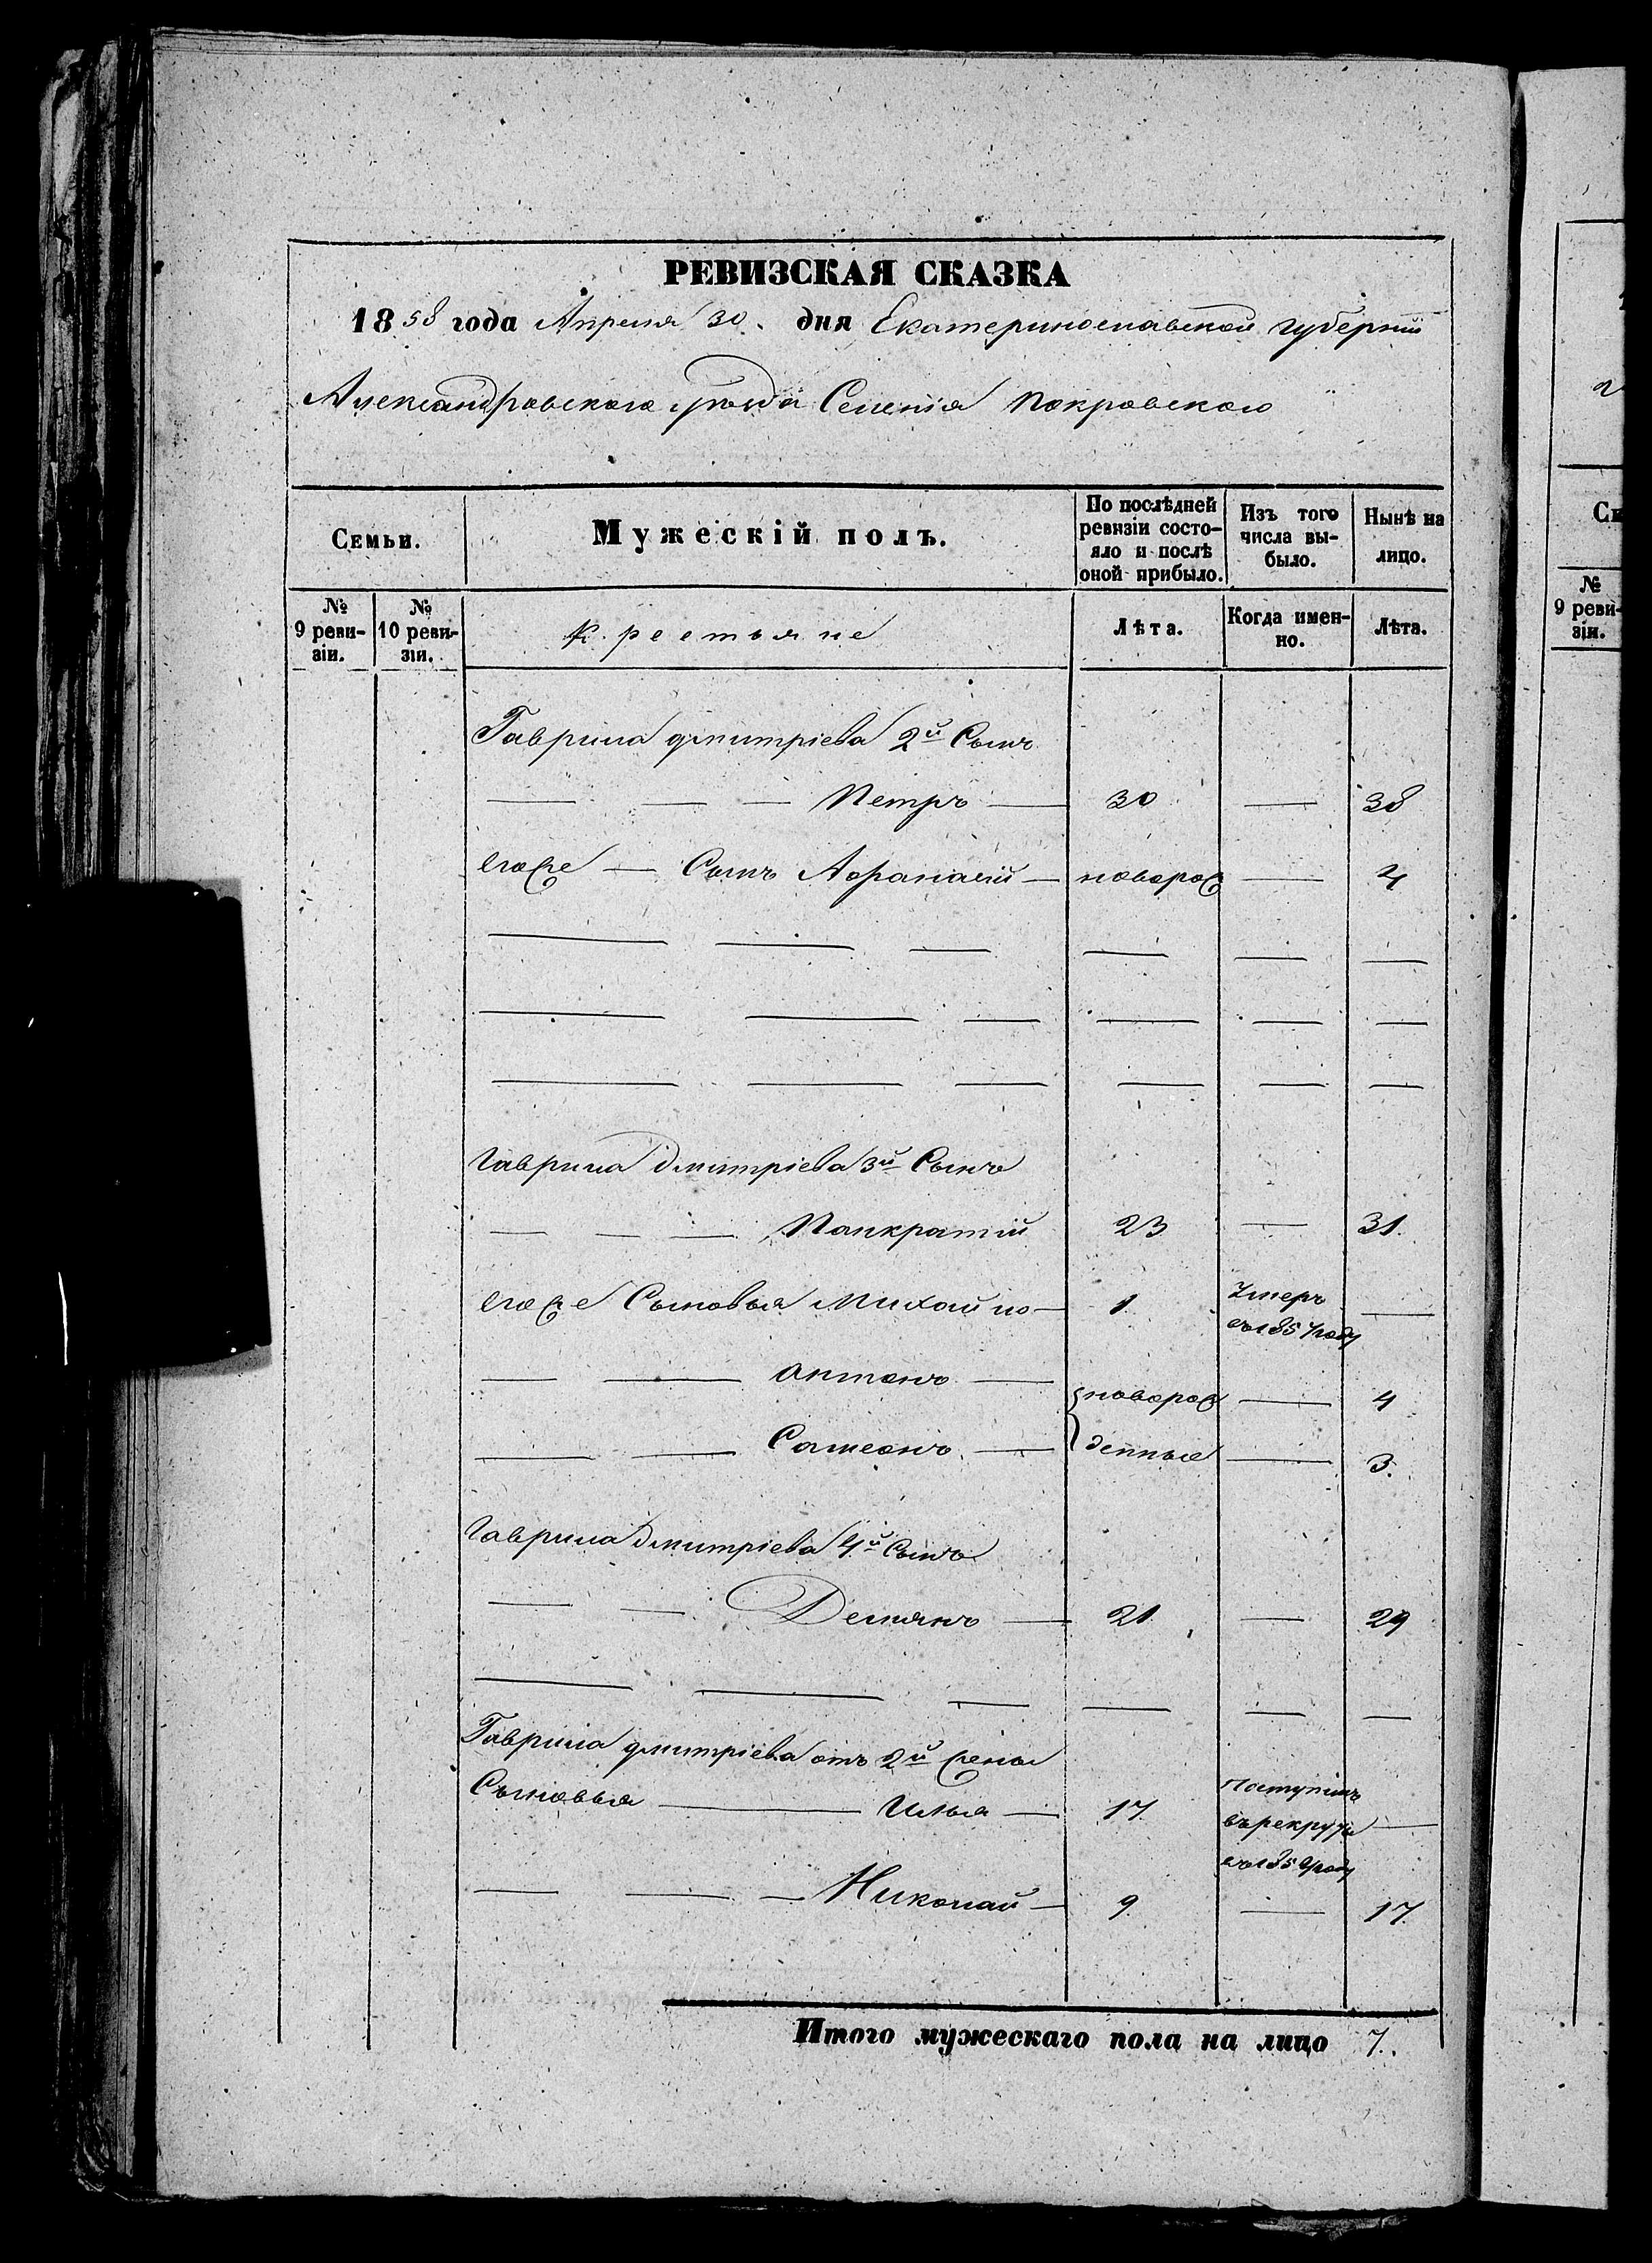 РЕВИЗСКАЯ СКАЗКА
1858 года Апреля 30. дня Екатеринославской губернии
Александровского уезда Селенія Покровского
Семьи.
Мужескій полъ.
По послѣдней ревизіи состо-
яло и послѣ
оной прибыло.
Изъ того
числа вы-
было.
Нынѣ на
лицо.
№
9 реви-
зіи.
№
10 реви-
зіи.
Крестьяне
Лѣта.
Когда имен-
но.
Лѣта.
Гаврила Дмитріева 2й Сынъ
Петръ 30 — 38
егоже — Сынъ Афанасій — новорож — 4
Гаврила Дмитріева 3й Сынъ
Панкратій 23 — 31.
егоже Сыновья Михайло — 1 Умеръ
въ 1857 году —
Антонъ — новорож — 4
Самсонъ — денные — 3.
Гаврила Дмитріева 4й Сынъ
Демянъ — 21 — 29
Гаврила Дмитріева отъ 2й жены
Сыновья — Илья — 17. поступилъ
в рекруты —
въ 185 году
Николай — 9 — 17.
Итого мужескаго пола на лицо 7.
№
9 реви-
зіи.